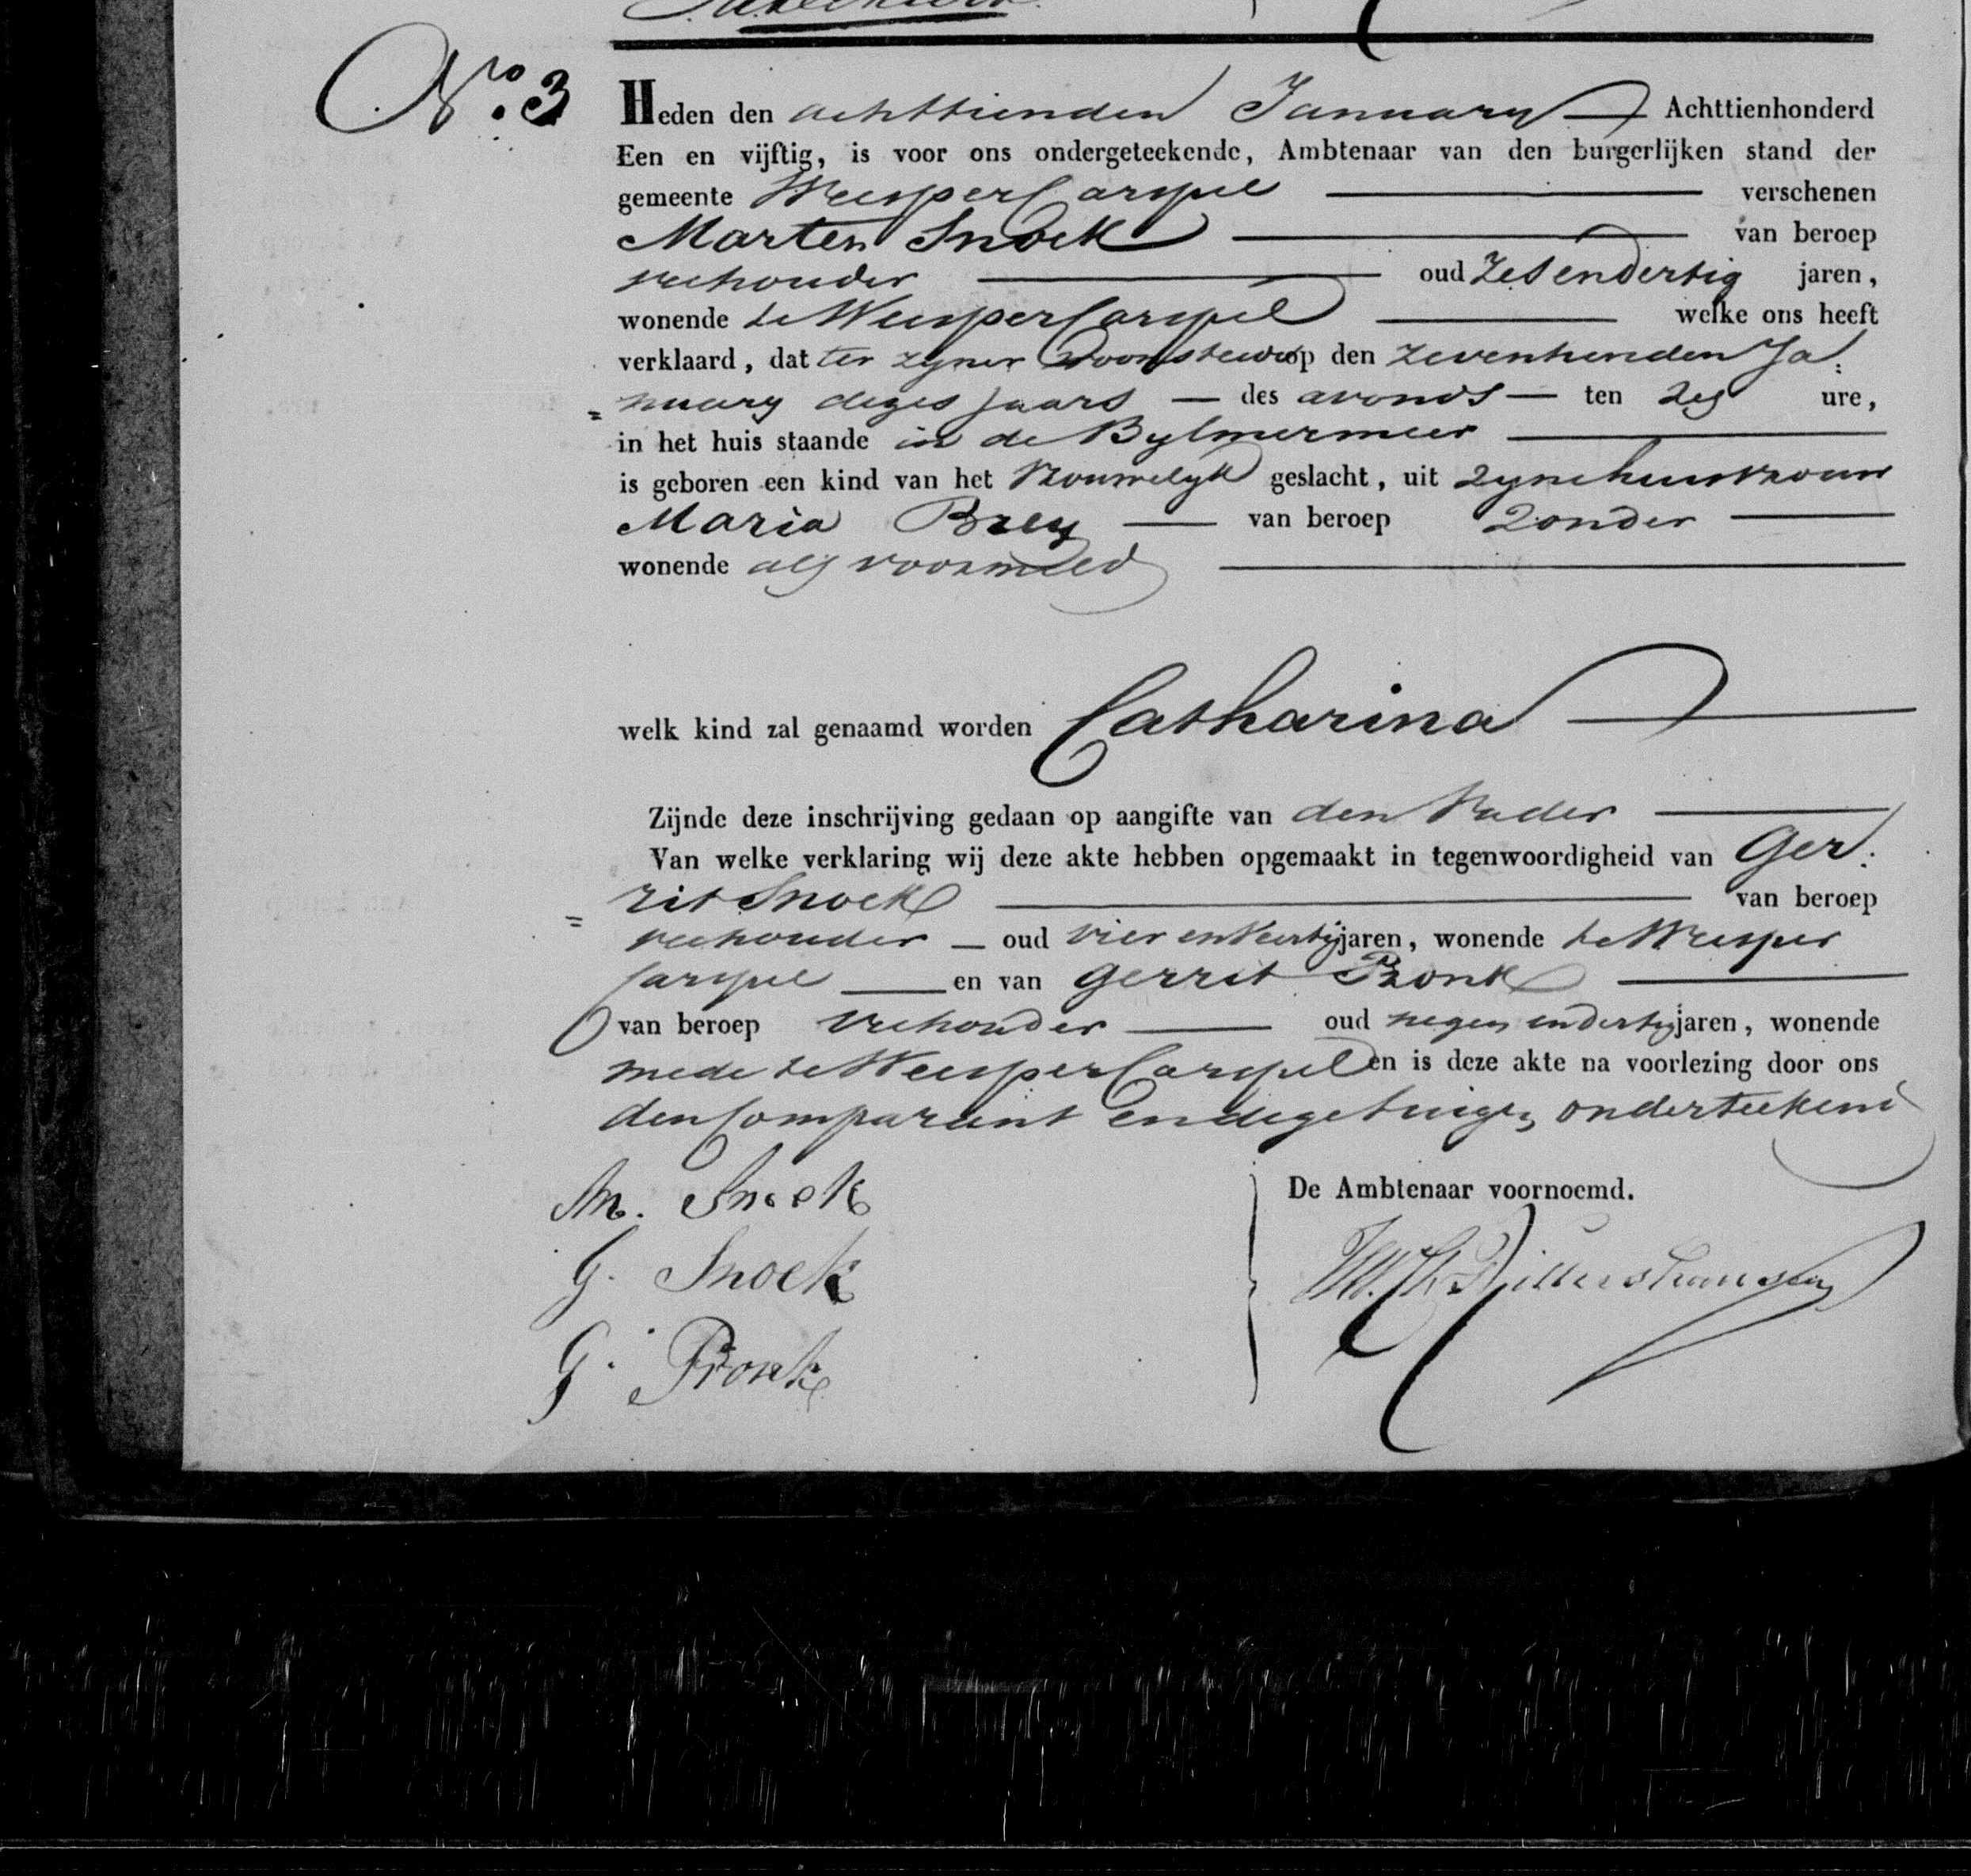 No. 3
Heden den achttienden January Achttienhonderd
Een en vijftig, is voor ons ondergeteekende, Ambtenaar van den burgerlijken stand der
gemeente WeesperCarspel verschenen
Marten Snoek van beroep
veehouder oud zesendertig jaren,
wonende te WeesperCarspel welke ons heeft
verklaard, dat ter zyner woonstede op den zeventienden Ja:
=nuary dezes jaars — des avonds — ten zes ure,
in het huis staande in de Bylmermeer
is geboren een kind van het Vrouwelyk geslacht, uit zyne huisvrouw
Maria Brey — van beroep Zonder
wonende als voormeld
welk kind zal genaamd worden Catharina
Zijnde deze inschrijving gedaan op aangifte van den Vader
Van welke verklaring wij deze akte hebben opgemaakt in tegenwoordigheid van Ger:
=rit Snoek van beroep
veehouder — oud vier en veertig jaren, wonende te Weesper
Carspel en van Gerrit Pronk
van beroep veehouder oud negen en dertig jaren, wonende
mede te WeesperCarspel en is deze akte na voorlezing door ons
den Comparant en de getuigen onderteekend
M. Snoek
De Ambtenaar voornoemd.
G. Snoek
G. Pronk